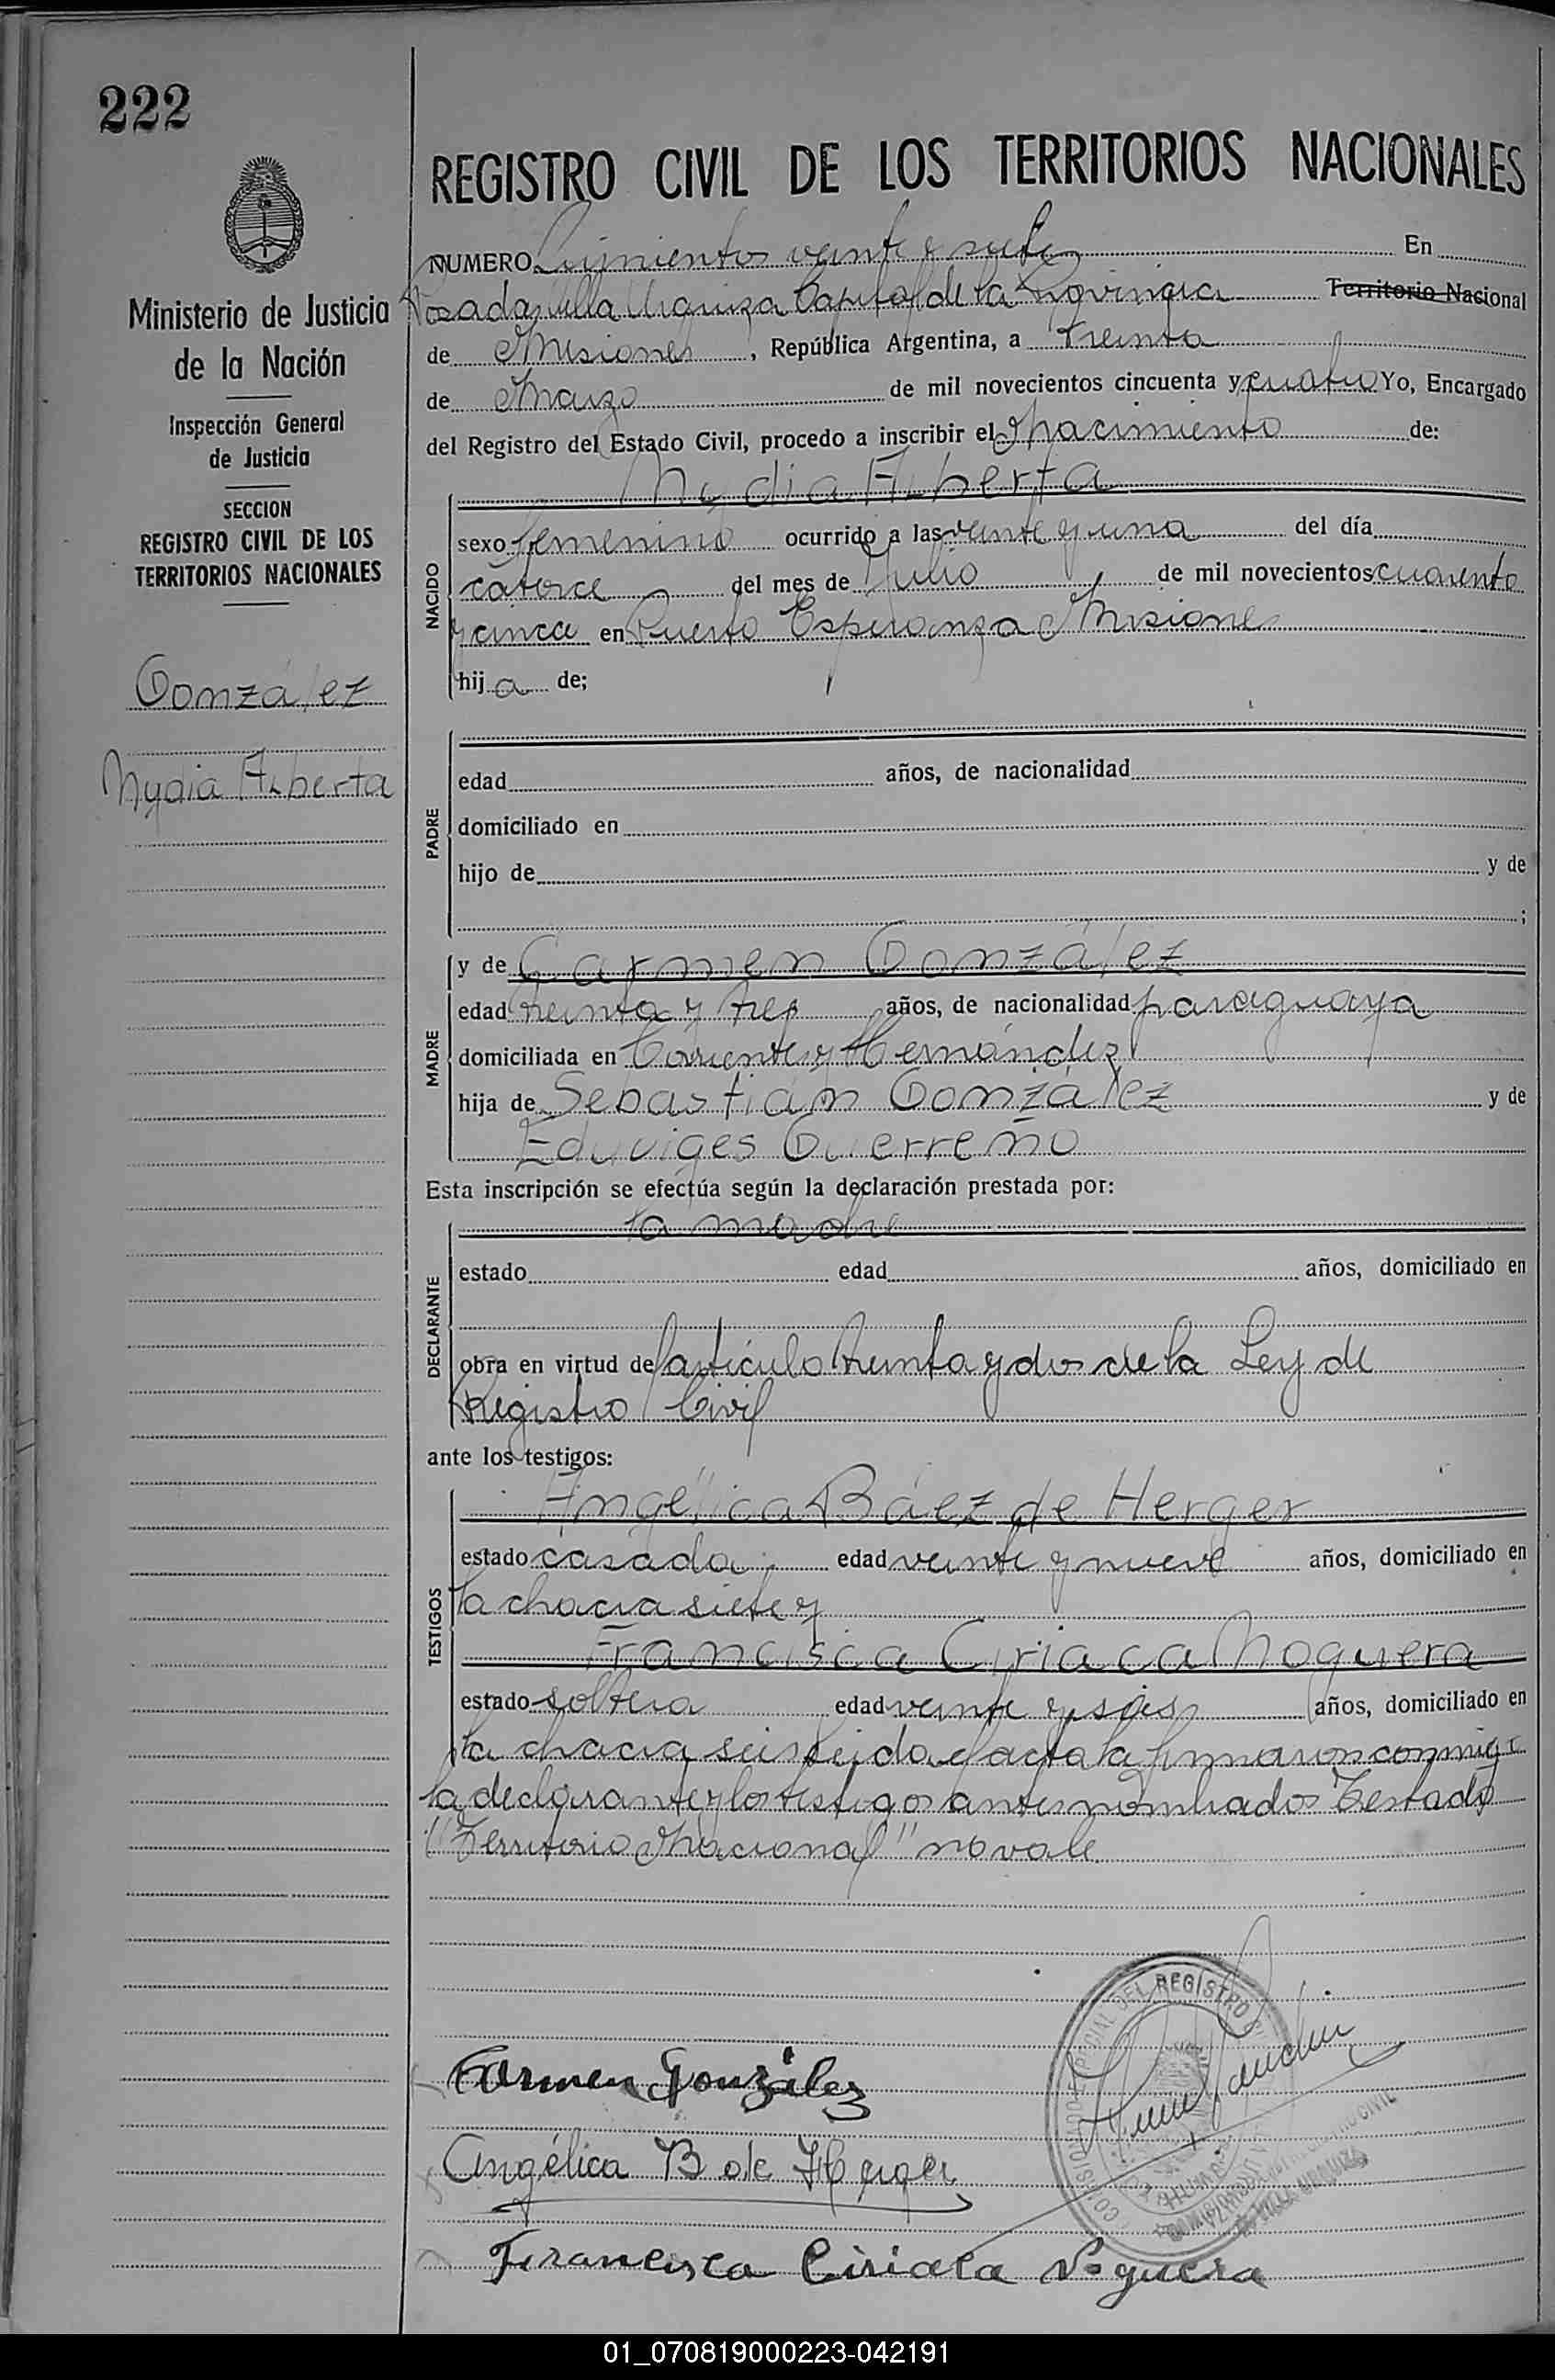 222
REGISTRO CIVIL DE LOS TERRITORIOS NACIONALES
NUMERO veinte y siete En
Posadas Villa Urquiza Capital de la Provincia Territorio Nacional
de Misiones, República Argentina, a Treinta
de Marzo de mil novecientos cincuenta y cuatro Yo, Encargado
del Registro del Estado Civil, procedo a inscribir el Nacimiento de:
Nydia Alberta
NACIDO
sexo femenino ocurrido a las veinte y una del día
catorce del mes de Julio de mil novecientos cuarenta
y cinco en Puerto Esperanza Misiones
hija de;
PADRE
edad años, de nacionalidad
domiciliado en
hijo de y de
;
MADRE
y de Carmen González
edad treinta y tres años, de nacionalidad paraguaya
domiciliada en Corrientes y Hernández
hija de Sebastián González y de
Eduviges Guerreño
Esta inscripción se efectúa según la declaración prestada por:
DECLARANTE
la madre
estado edad años, domiciliado en
obra en virtud del artículo treinta y dos de la Ley de
Registro Civil
ante los testigos:
TESTIGOS
Angélica Báez de Herger
estado casada edad veinte y nueve años, domiciliado en
la chacra siete y
Francisca Ciriaca Noguera
estado soltera edad veinte y seis años, domiciliado en
la chacra seis Leida el acta la firmaron conmigo
la declarante y los testigos antes nombrados Testado
"Territorio Nacional" no vale
Carmen González
Angélica B de Herger
Francisca Ciriaca Noguera
DEL REGISTRO
Ministerio de Justicia
de la Nación
Inspección General
de Justicia
SECCION
REGISTRO CIVIL DE LOS
TERRITORIOS NACIONALES
González
Nydia Alberta
01_070819000223-042191